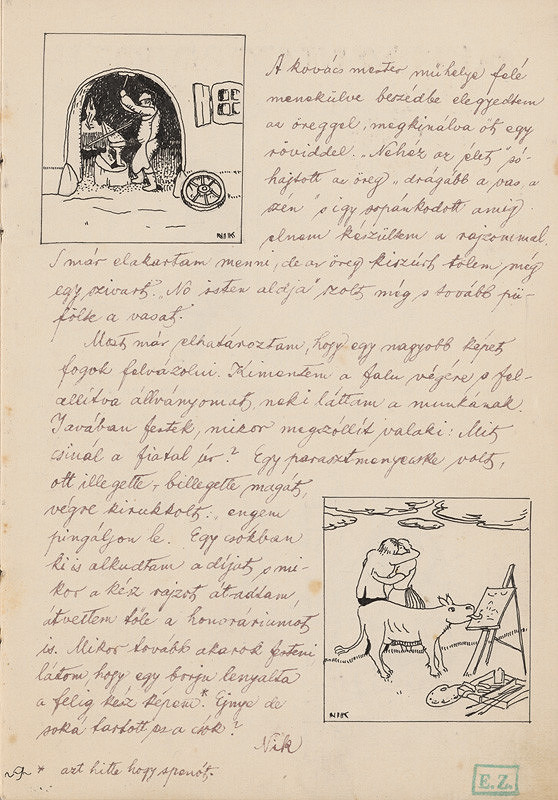 A kovács mester műhelye felé
menekülve beszédbe elegyedtem
az öreggel, megkinálva őt egy
röviddel. „Nehéz az élet" só-
hajtott az öreg „drágább a vas, a
szén" s igy sopánkodott amíg
elnem készültem a rajzommal.
S már elakartam menni, de az öreg kiszúrt tőlem még
egy szivart. „No isten áldja" szólt még s tovább pü-
fölte a vasat.
Most már elhatároztam, hogy egy nagyobb képet
fogok felvázolni. Kimentem a falu végére s fel-
állítva állványomat, neki láttam a munkának.
Javában festek, mikor megszóllít valaki: Mit
csinál a fiatal úr? Egy parasztmenyecske volt,
ott illegette, billegette magát,
végre kirukkolt: „engem
pingáljon le. Egy csókban
ki is alkudtam a díjat, s mi-
kor a kész rajzot átadtam,
átvettem tőle a honoráriumot
is. Mikor tovább akarok festeni
látom hogy egy borju lenyalta
a félig kész képem.* Ejnye de
soká tartott ez a csók?
Nik
* azt hitte hogy spenót.
NIK
NIK
E.Z.